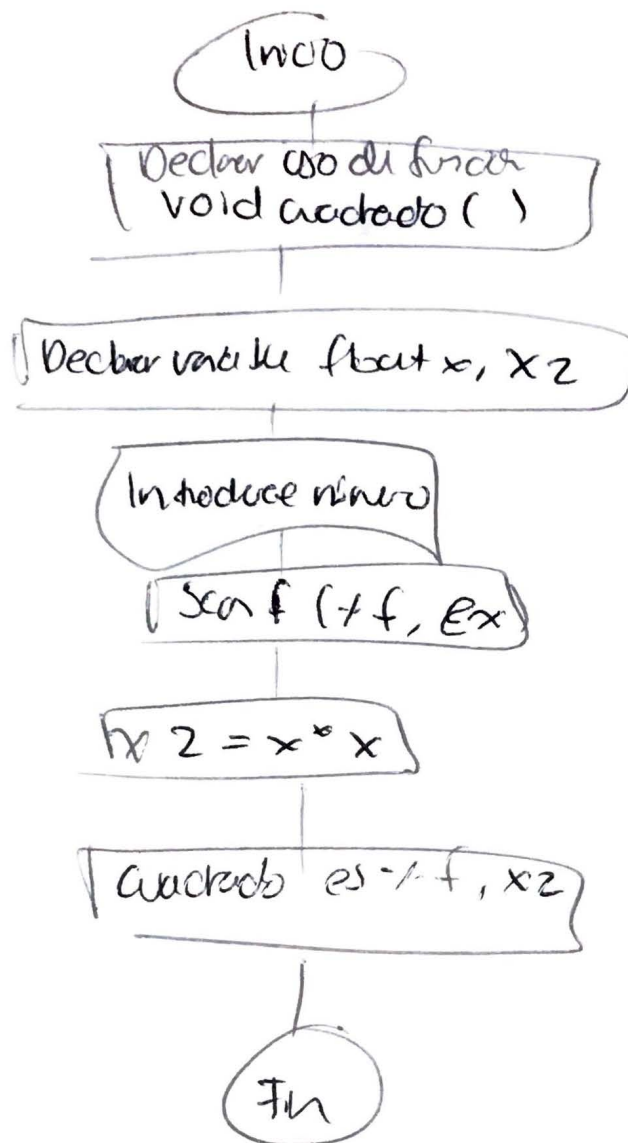 Inicio
Declarar uso de funcion
void cuadrado ( )
Declarar variable float x, x2
Introduce número
Scanf (%f, &x)
x2 = x * x
cuadrado es %f, x2
Fin